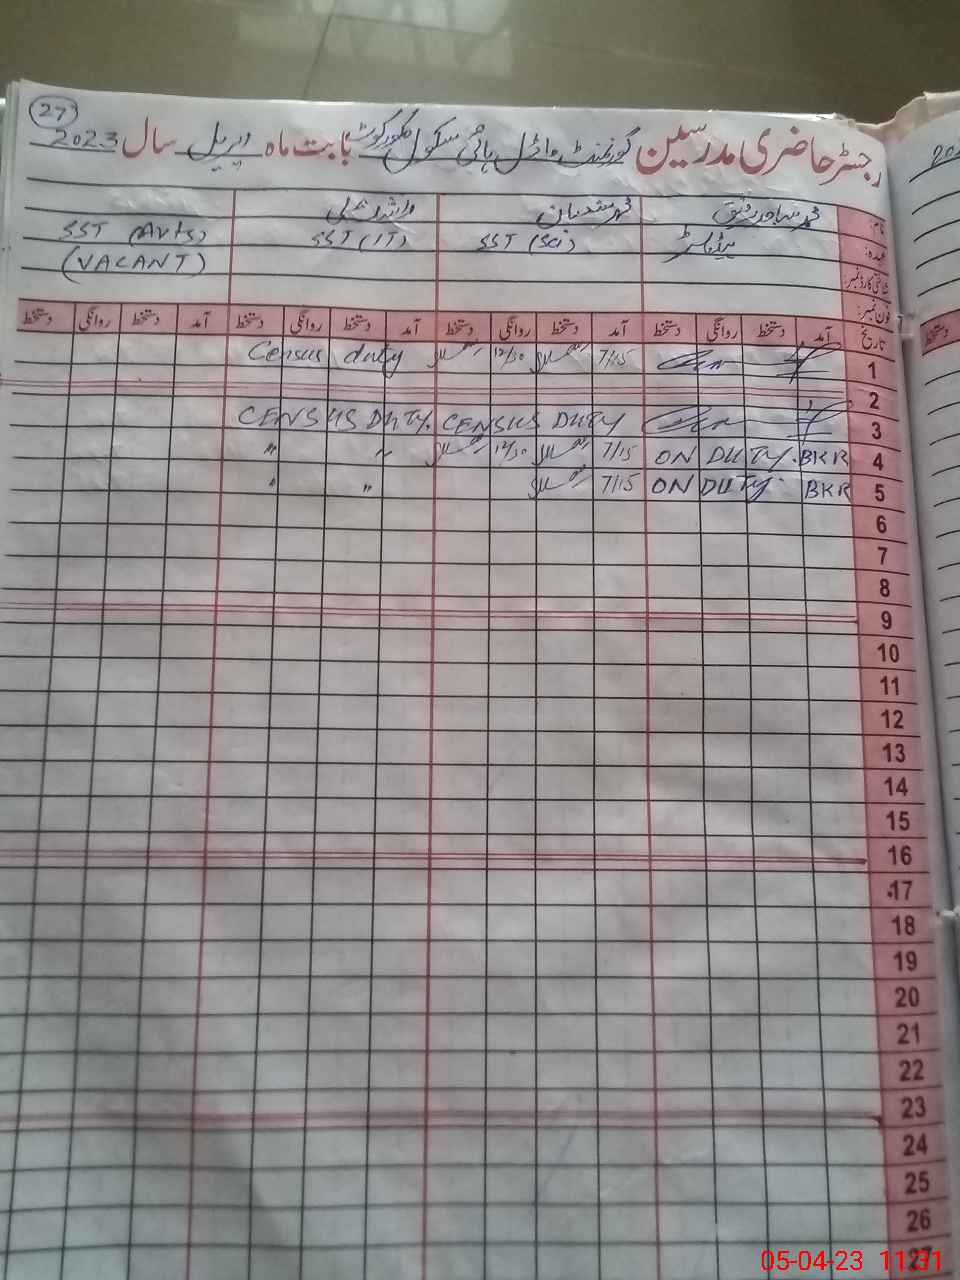 27
رجسٹر حاضری مدرسین گورنمنٹ ماڈل ہائی سکول کوٹ بابت ماہ اپریل سال 2023
نام: محمد ساجد رفیق محمد راشد علی
عہدہ: ہیڈماسٹر SST (SCI) SST (IT) SST (Arts)
شناختی کارڈ نمبر: (VACANT)
فون نمبر:
تاریخ آمد دستخط روانگی دستخط آمد دستخط روانگی دستخط آمد دستخط روانگی دستخط آمد دستخط روانگی دستخط
1 7/15 12/30 Census duty
2
3 CENSUS DUTY CENSUS DUTY.
4 ON DUTY. BKR 7/15 12/30 " "
5 ON DUTY. BKR 7/15 " "
6
7
8
9
10
11
12
13
14
15
16
17
18
19
20
21
22
23
24
25
26
27
05-04-23 11:31